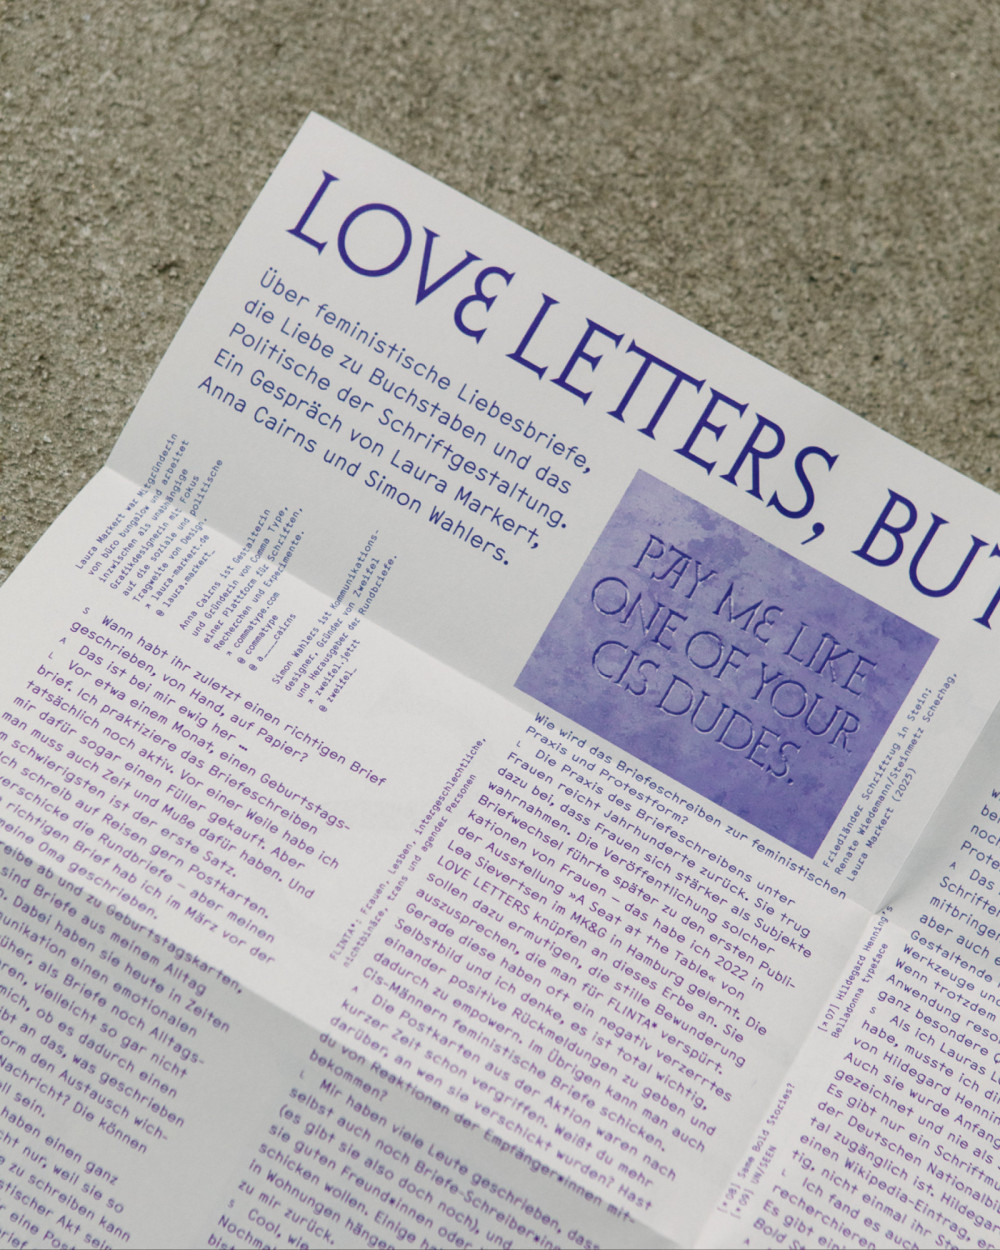 LOVE LETTERS, BUT
Über feministische Liebesbriefe,
die Liebe zu Buchstaben und das
Politische der Schriftgestaltung.
Ein Gespräch von Laura Markert,
Anna Cairns und Simon Wahlers.
Laura Markert war Mitgründerin
von büro bungalow und arbeitet
inzwischen als unabhängige
Grafikdesignerin mit Fokus
auf die soziale und politische
Tragweite von Design.
× laura-markert.de
@ laura.markert_
Anna Cairns ist Gestalterin
und Gründerin von Comma Type,
einer Plattform für Schriften,
Recherchen und Experimente.
× commatype.com
@ commatype
@ a____cairns
Simon Wahlers ist Kommunikations-
designer, Gründer von Zweifel
und Herausgeber der Rundbriefe.
× zweifel.jetzt
@ zweifel_
PAY ME LIKE
ONE OF YOUR
CIS DUDES.
Friedländer Schriftzug in Stein;
Renate Wiedemann/Steinmetz Scherhag,
Laura Markert (2025)
S
Wann habt ihr zuletzt einen richtigen Brief
geschrieben, von Hand, auf Papier?
A
Das ist bei mir ewig her …
L
Vor etwa einem Monat, einen Geburtstags-
brief. Ich praktiziere das Briefeschreiben
tatsächlich noch aktiv. Vor einer Weile habe ich
mir dafür sogar einen Füller gekauft. Aber
man muss auch Zeit und Muße dafür haben. Und
m schwierigsten ist der erste Satz.
ch schreib auf Reisen gern Postkarten.
erschicke die Rundbriefe – aber meinen
richtigen Brief hab ich im März vor der
meine Oma geschrieben.
ab und zu Geburtstagskarten,
sind Briefe aus meinem Alltag
Dabei haben sie heute in Zeiten
unikation einen emotionalen
üher, als Briefe noch Alltags-
ren, vielleicht so gar nicht
mich, ob es dadurch einen
ibt an das, was geschrieben
orm den Austausch wich-
Nachricht? Die können
sein.
haben einen ganz
cht nur, weil sie so
zu schreiben kann
tischer Akt sein
eine Post
FLINTA*: Frauen, Lesben, intergeschlechtliche,
nichtbinäre, trans und agender Personen
Wie wird das Briefeschreiben zur feministischen
Praxis und Protestform?
L
Die Praxis des Briefeschreibens unter
Frauen reicht Jahrhunderte zurück. Sie trug
dazu bei, dass Frauen sich stärker als Subjekte
wahrnahmen. Die Veröffentlichung solcher
Briefwechsel führte später zu den ersten Publi-
kationen von Frauen – das habe ich 2022 in
der Ausstellung »A Seat at the Table« von
Lea Sievertsen im MK&G in Hamburg gelernt. Die
LOVE LETTERS knüpfen an dieses Erbe an. Sie
sollen dazu ermutigen, die stille Bewunderung
auszusprechen, die man für FLINTA* verspürt.
Gerade diese haben oft ein negativ verzerrtes
Selbstbild und ich denke, es ist total wichtig,
einander positive Rückmeldung zu geben und
dadurch zu empowern. Im Übrigen kann man auch
Cis-Männern feministische Briefe schicken.
A
Die Postkarten aus der Aktion waren nach
kurzer Zeit schon vergriffen. Weißt du mehr
darüber, an wen sie verschickt wurden? Hast
du von Reaktionen der Empfänger*innen mit-
bekommen?
L
Mir haben viele Leute geschrieben, dass
selbst auch noch Briefe-Schreiber*innen
(es gibt sie also doch noch),
sie guten Freund*innen
schicken wollen. Einige
in Wohnungen hängen
zu mir zurück.
S
Cool, wie
Nochmal
[×07] Hildegard Henning's
Belladonna typeface
[×08] Same Bold Stories?
[×09] UN/SEEN
A
Das
Schriften
mitbringe
aber auch
Gestaltende
Werkzeuge un
Wenn trotzdem
Anwendung reso
ganz besondere
S
Als ich Lauras L
habe, musste ich di
von Hildegard Hennin
Auch sie wurde Anfang
gezeichnet und nie als
Es gibt nur ein Schriftmu
der Deutschen Nationalbi
tal zugänglich ist. Hildegar
einen Wikipedia-Eintrag, er
tig, nicht einmal ihr St
L
Ich fand es auch
recherchieren
Es gibt ein
Bold St